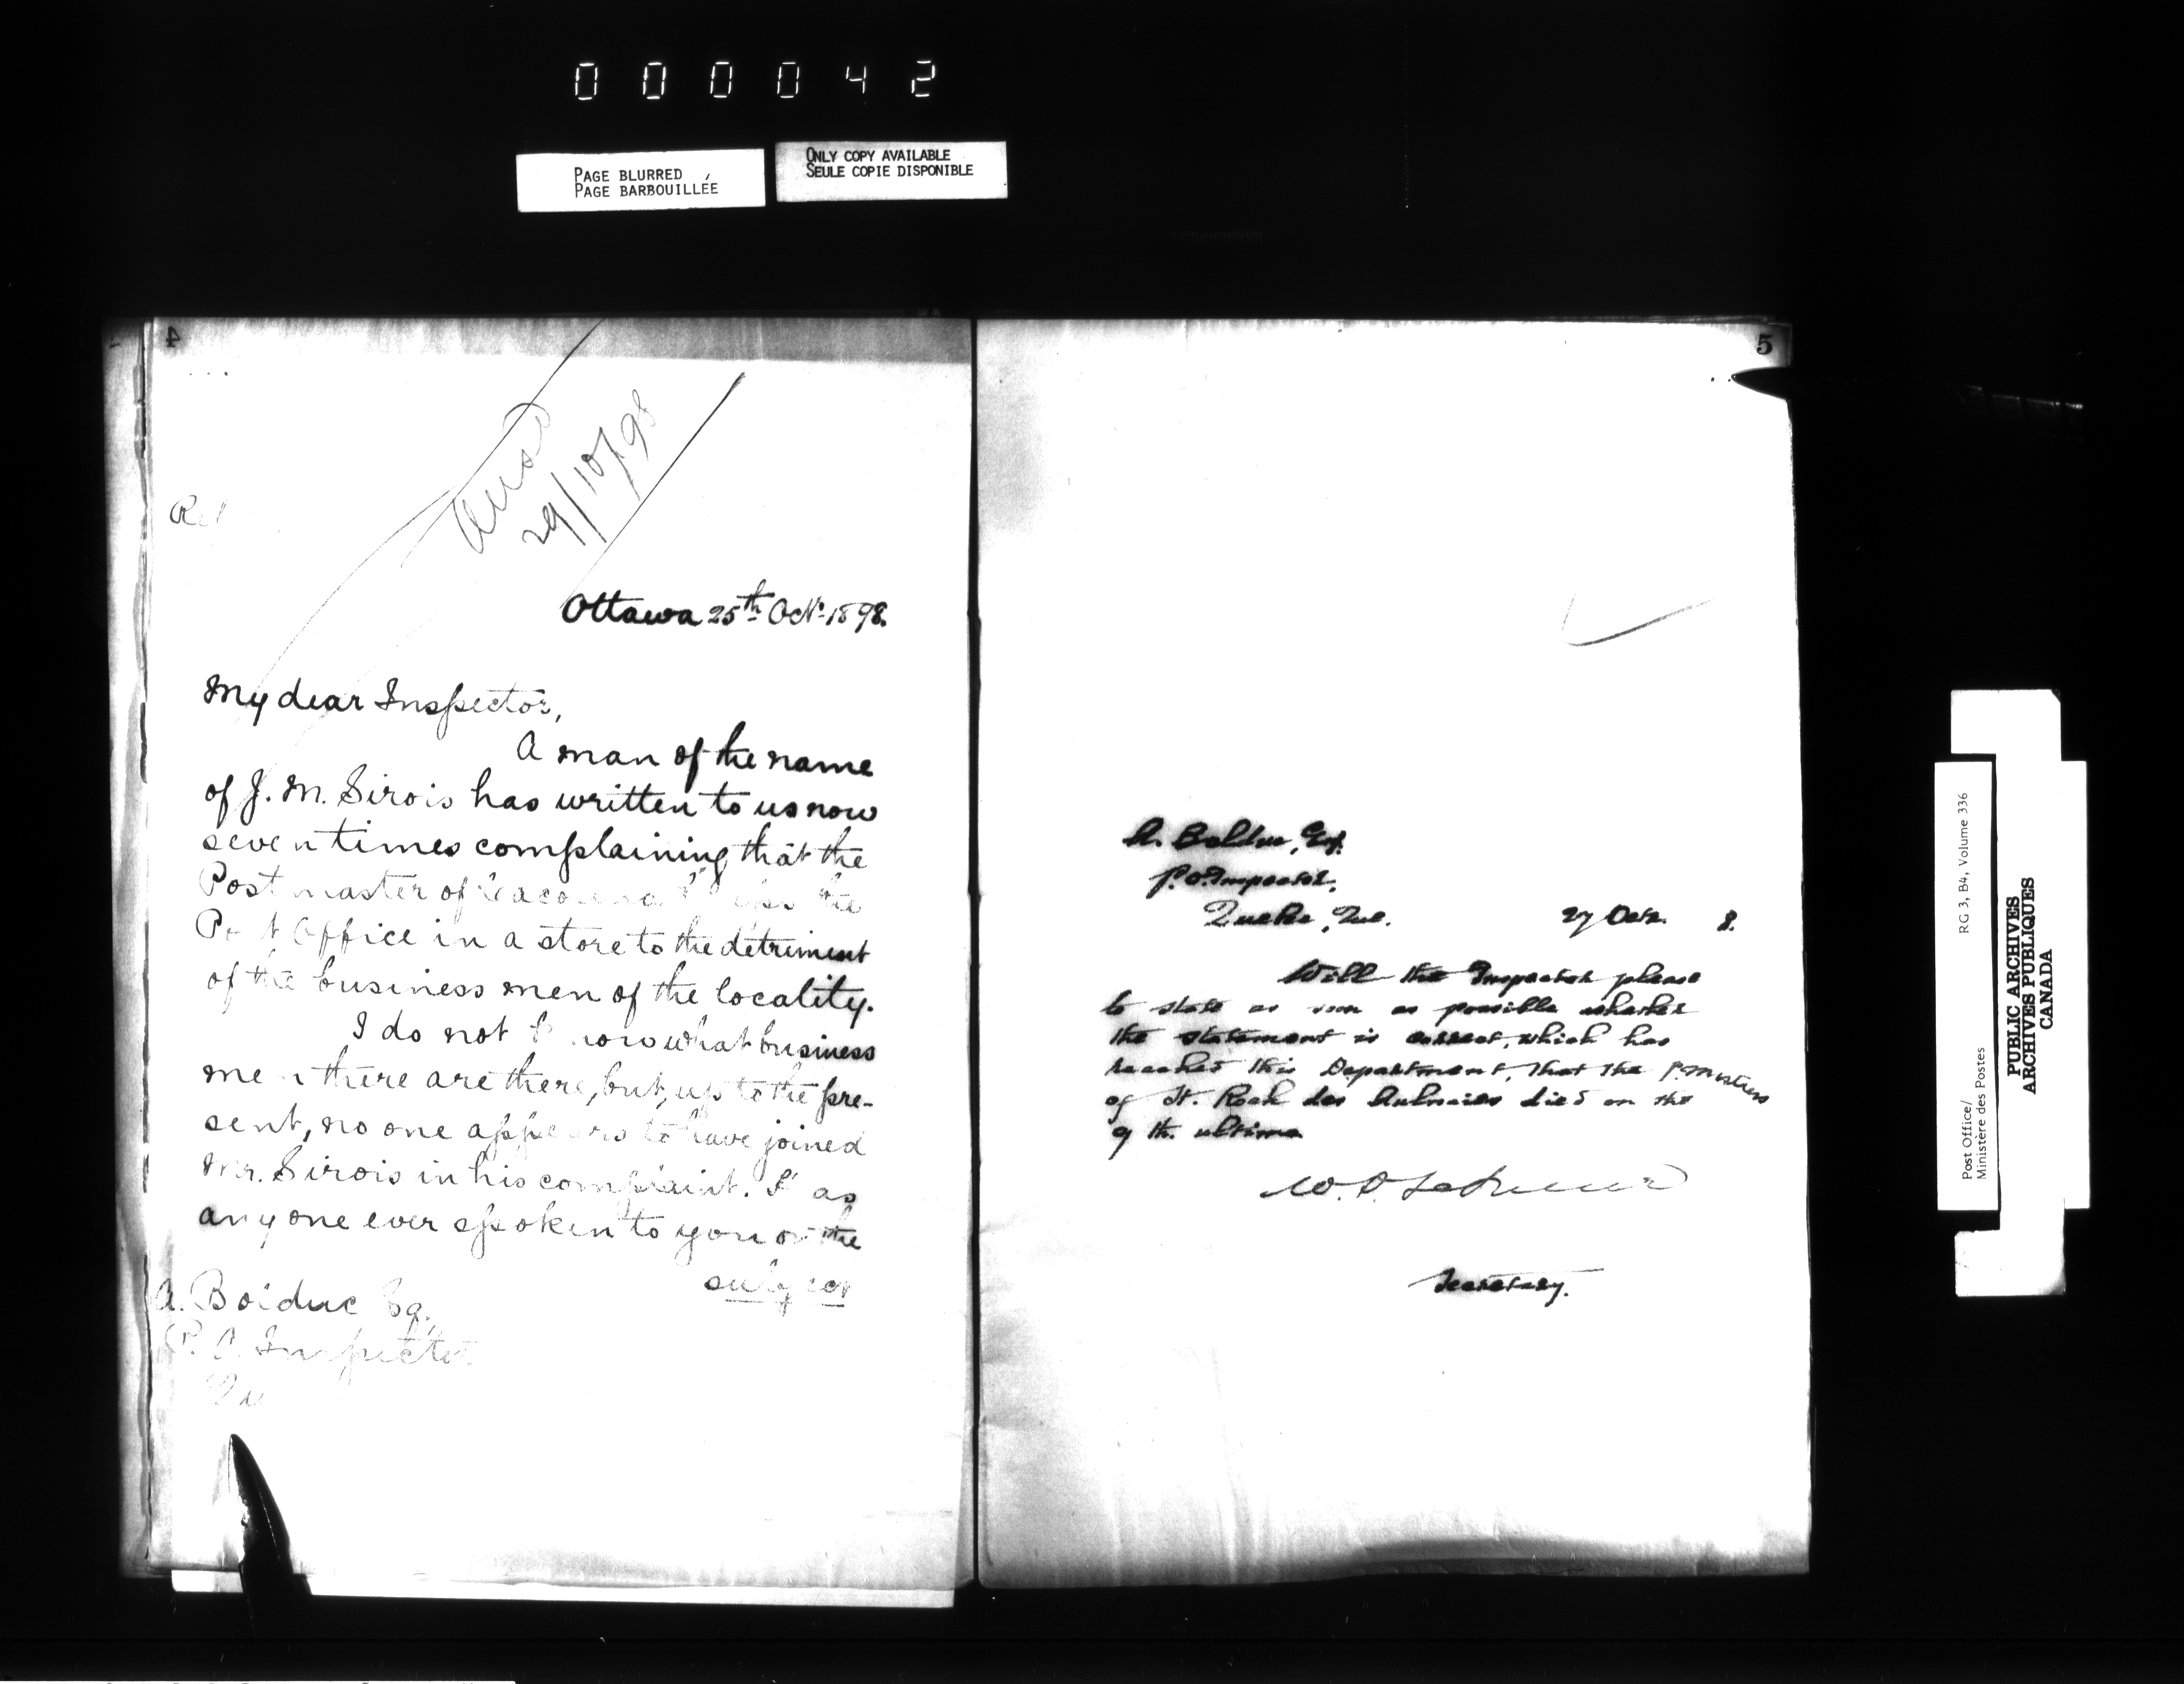 000042
PAGE BLURRED
PAGE BARBOUILLÉE
ONLY COPY AVAILABLE
SEULE COPIE DISPONIBLE
4
29/10/98
Ottawa 25th Oct. 1898.
My dear Inspector,
A man of the name
of J. M. Sirois has written to us now
seven times complaining that the
Postmaster of Cacouna the
Post Office in a store to the detriment
of the business men of the locality.
I do not know what business
men there are there, but, up to the pre-
sent, no one appears to have joined
Mr. Sirois in his complaint. Has
anyone ever spoken to you on the
subject
A. Bolduc Esq.
P. O. Inspector
5
A. Bolduc, Esq.
P.O. Inspector,
Quebec, Que. 27 Octr. 8.
Will the Inspector please
to state as soon as possible whether
the statement is correct, which has
reached this Department, that the P. Mistress
of St. Roch des Aulnaies died on the
9 th. ultimo
Secretary.
Post Office/
Ministère des Postes
RG 3, B4, Volume 336
PUBLIC ARCHIVES
ARCHIVES PUBLIQUES
CANADA